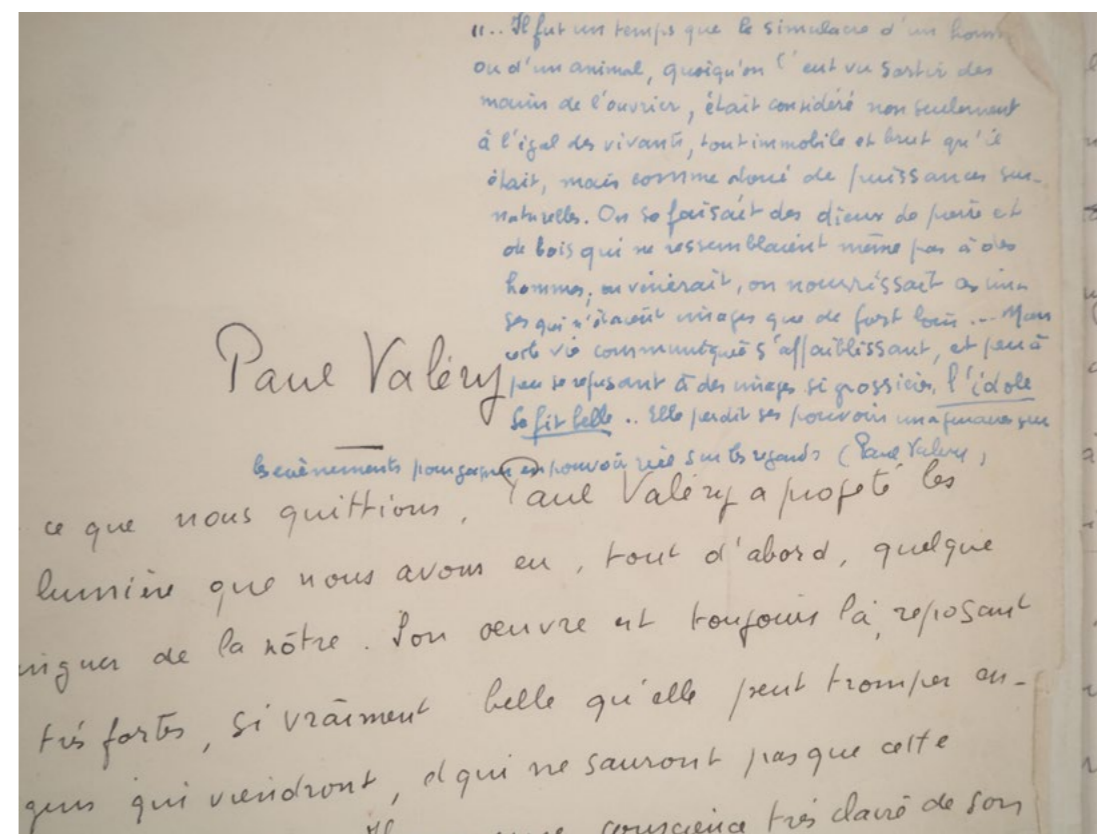 ".. Il fut un temps que le simulacre d'un homme
ou d'un animal, quoiqu'on l'eut vu sortir des
mains de l'ouvrier, était considéré non seulement
à l'égal des vivants, tout immobile et brut qu'il
était, mais comme doué de puissances sur-
naturelles. On se faisait des dieux de pierre et
de bois qui ne ressemblaient même pas à des
hommes; on vénérait, on nourrissait ces ima-
ges qui n'étaient images que de fort loin ... Mais
cette vie communiquée s'affaiblissant, et peu à
peu se refusant à des images si grossières, l'idole
se fit belle .. Elle perdit ses pouvoirs imaginaires sur
les evènements pour gagner en pouvoir réel sur les regards (Paul Valery,
Paul Valéry
ce que nous quittions, Paul Valéry a projeté les
lumière que nous avons eu, tout d'abord, quelque
de la nôtre. Son oeuvre est toujours là, reposant
très fortes, si vraiment belle qu'elle peut tromper en-
gens qui viendront, et qui ne sauront pas que cette
Il conscience très claire de son